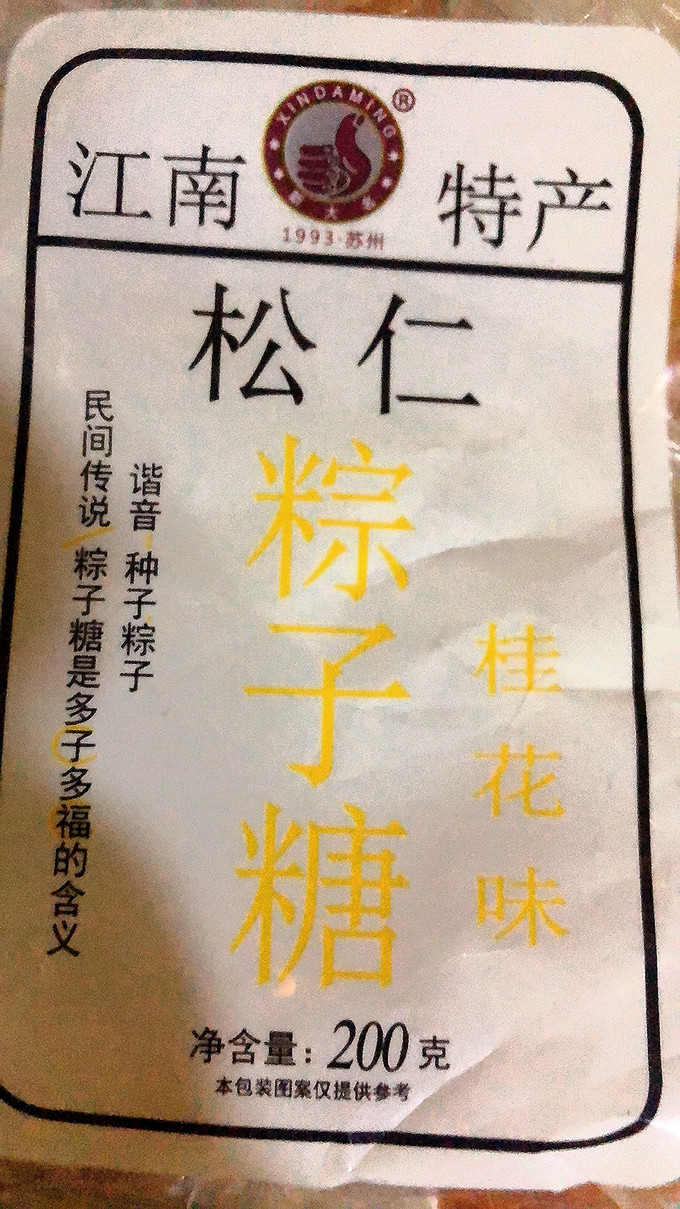 江南
XINDAMING
®
新大名
1993·苏州
特产
松仁
粽子糖
桂花味
谐音:种子粽子
民间传说/粽子糖是多子多福的含义
净含量：200克
本包装图案仅提供参考